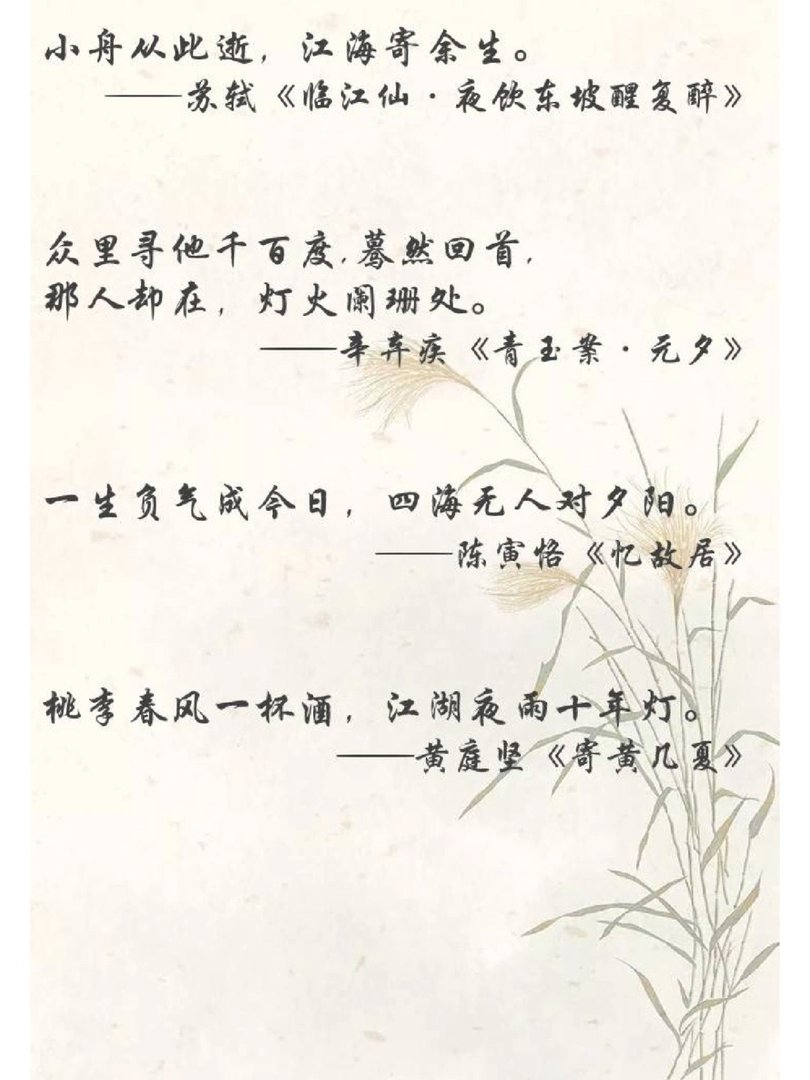 小舟从此逝，江海寄余生。
——苏轼《临江仙·夜饮东坡醒复醉》
众里寻他千百度,蓦然回首,
那人却在，灯火阑珊处。
——辛弃疾《青玉案·元夕》
一生负气成今日，四海无人对夕阳。
——陈寅恪《忆故居》
桃李春风一杯酒，江湖夜雨十年灯。
——黄庭坚《寄黄几夏》